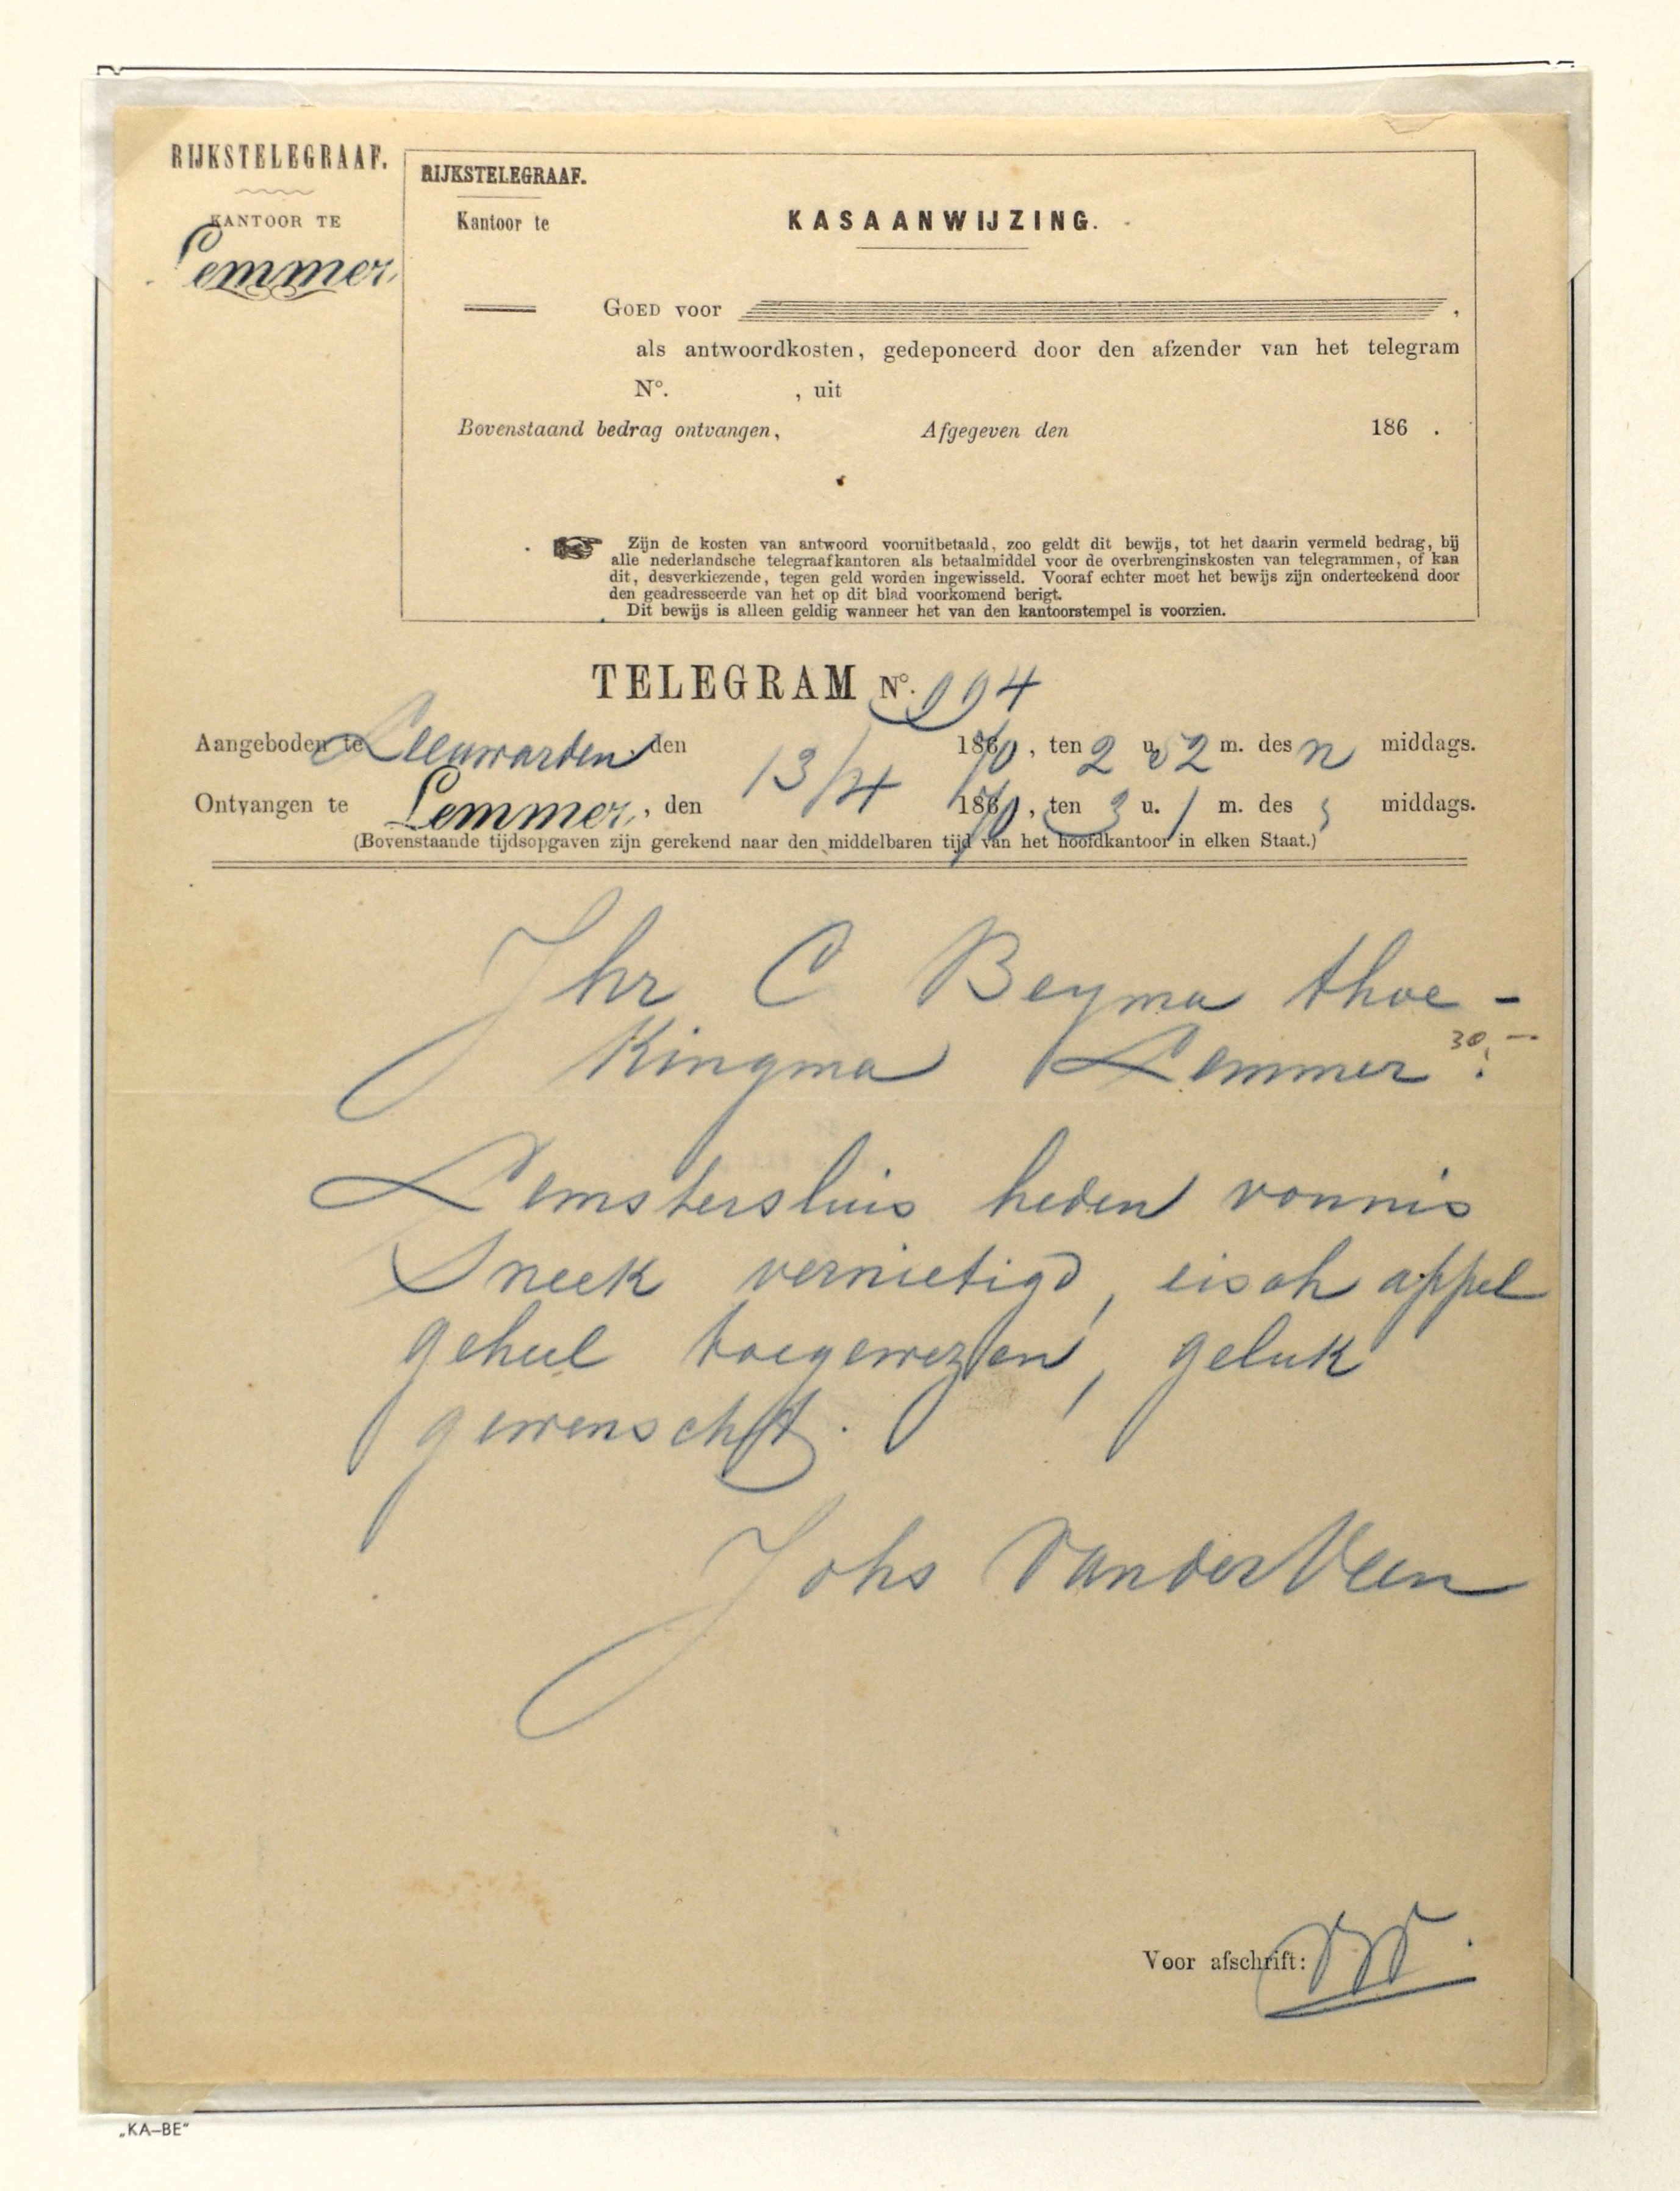 RIJKSTELEGRAAF.
KANTOOR TE
Lemmer
RIJKSTELEGRAAF.
Kantoor te
KASAANWIJZING.
GOED voor ,
als antwoordkosten, gedeponeerd door den afzender van het telegram
N°. , uit
Bovenstaand bedrag ontvangen, Afgegeven den 186 .
Zijn de kosten van antwoord vooruitbetaald, zoo geldt dit bewijs, tot het daarin vermeld bedrag, bij
alle nederlandsche telegraafkantoren als betaalmiddel voor de overbrenginskosten van telegrammen, of kan
dit, desverkiezende, tegen geld worden ingewisseld. Vooraf echter moet het bewijs zijn onderteekend door
den geadresseerde van het op dit blad voorkomend berigt.
Dit bewijs is alleen geldig wanneer het van den kantoorstempel is voorzien.
TELEGRAM N°.
Aangeboden te Leeuwarden den 13/4 1870, ten 2 u. 52 m. des n middags.
Ontvangen te Lemmer, den 1870, ten 3 u. 1 m. des middags.
(Bovenstaande tijdsopgaven zijn gerekend naar den middelbaren tijd van het hoofdkantoor in elken Staat.)
Jhr C Beyma thoe -
Kingma Lemmer.
30,—
Lemstersluis heden vonnis
Sneek vernietigd, eisch appel
geheel toegewezen, geluk
gewenscht.
Johs Vander Veen
Voor afschrift:
„KA–BE"